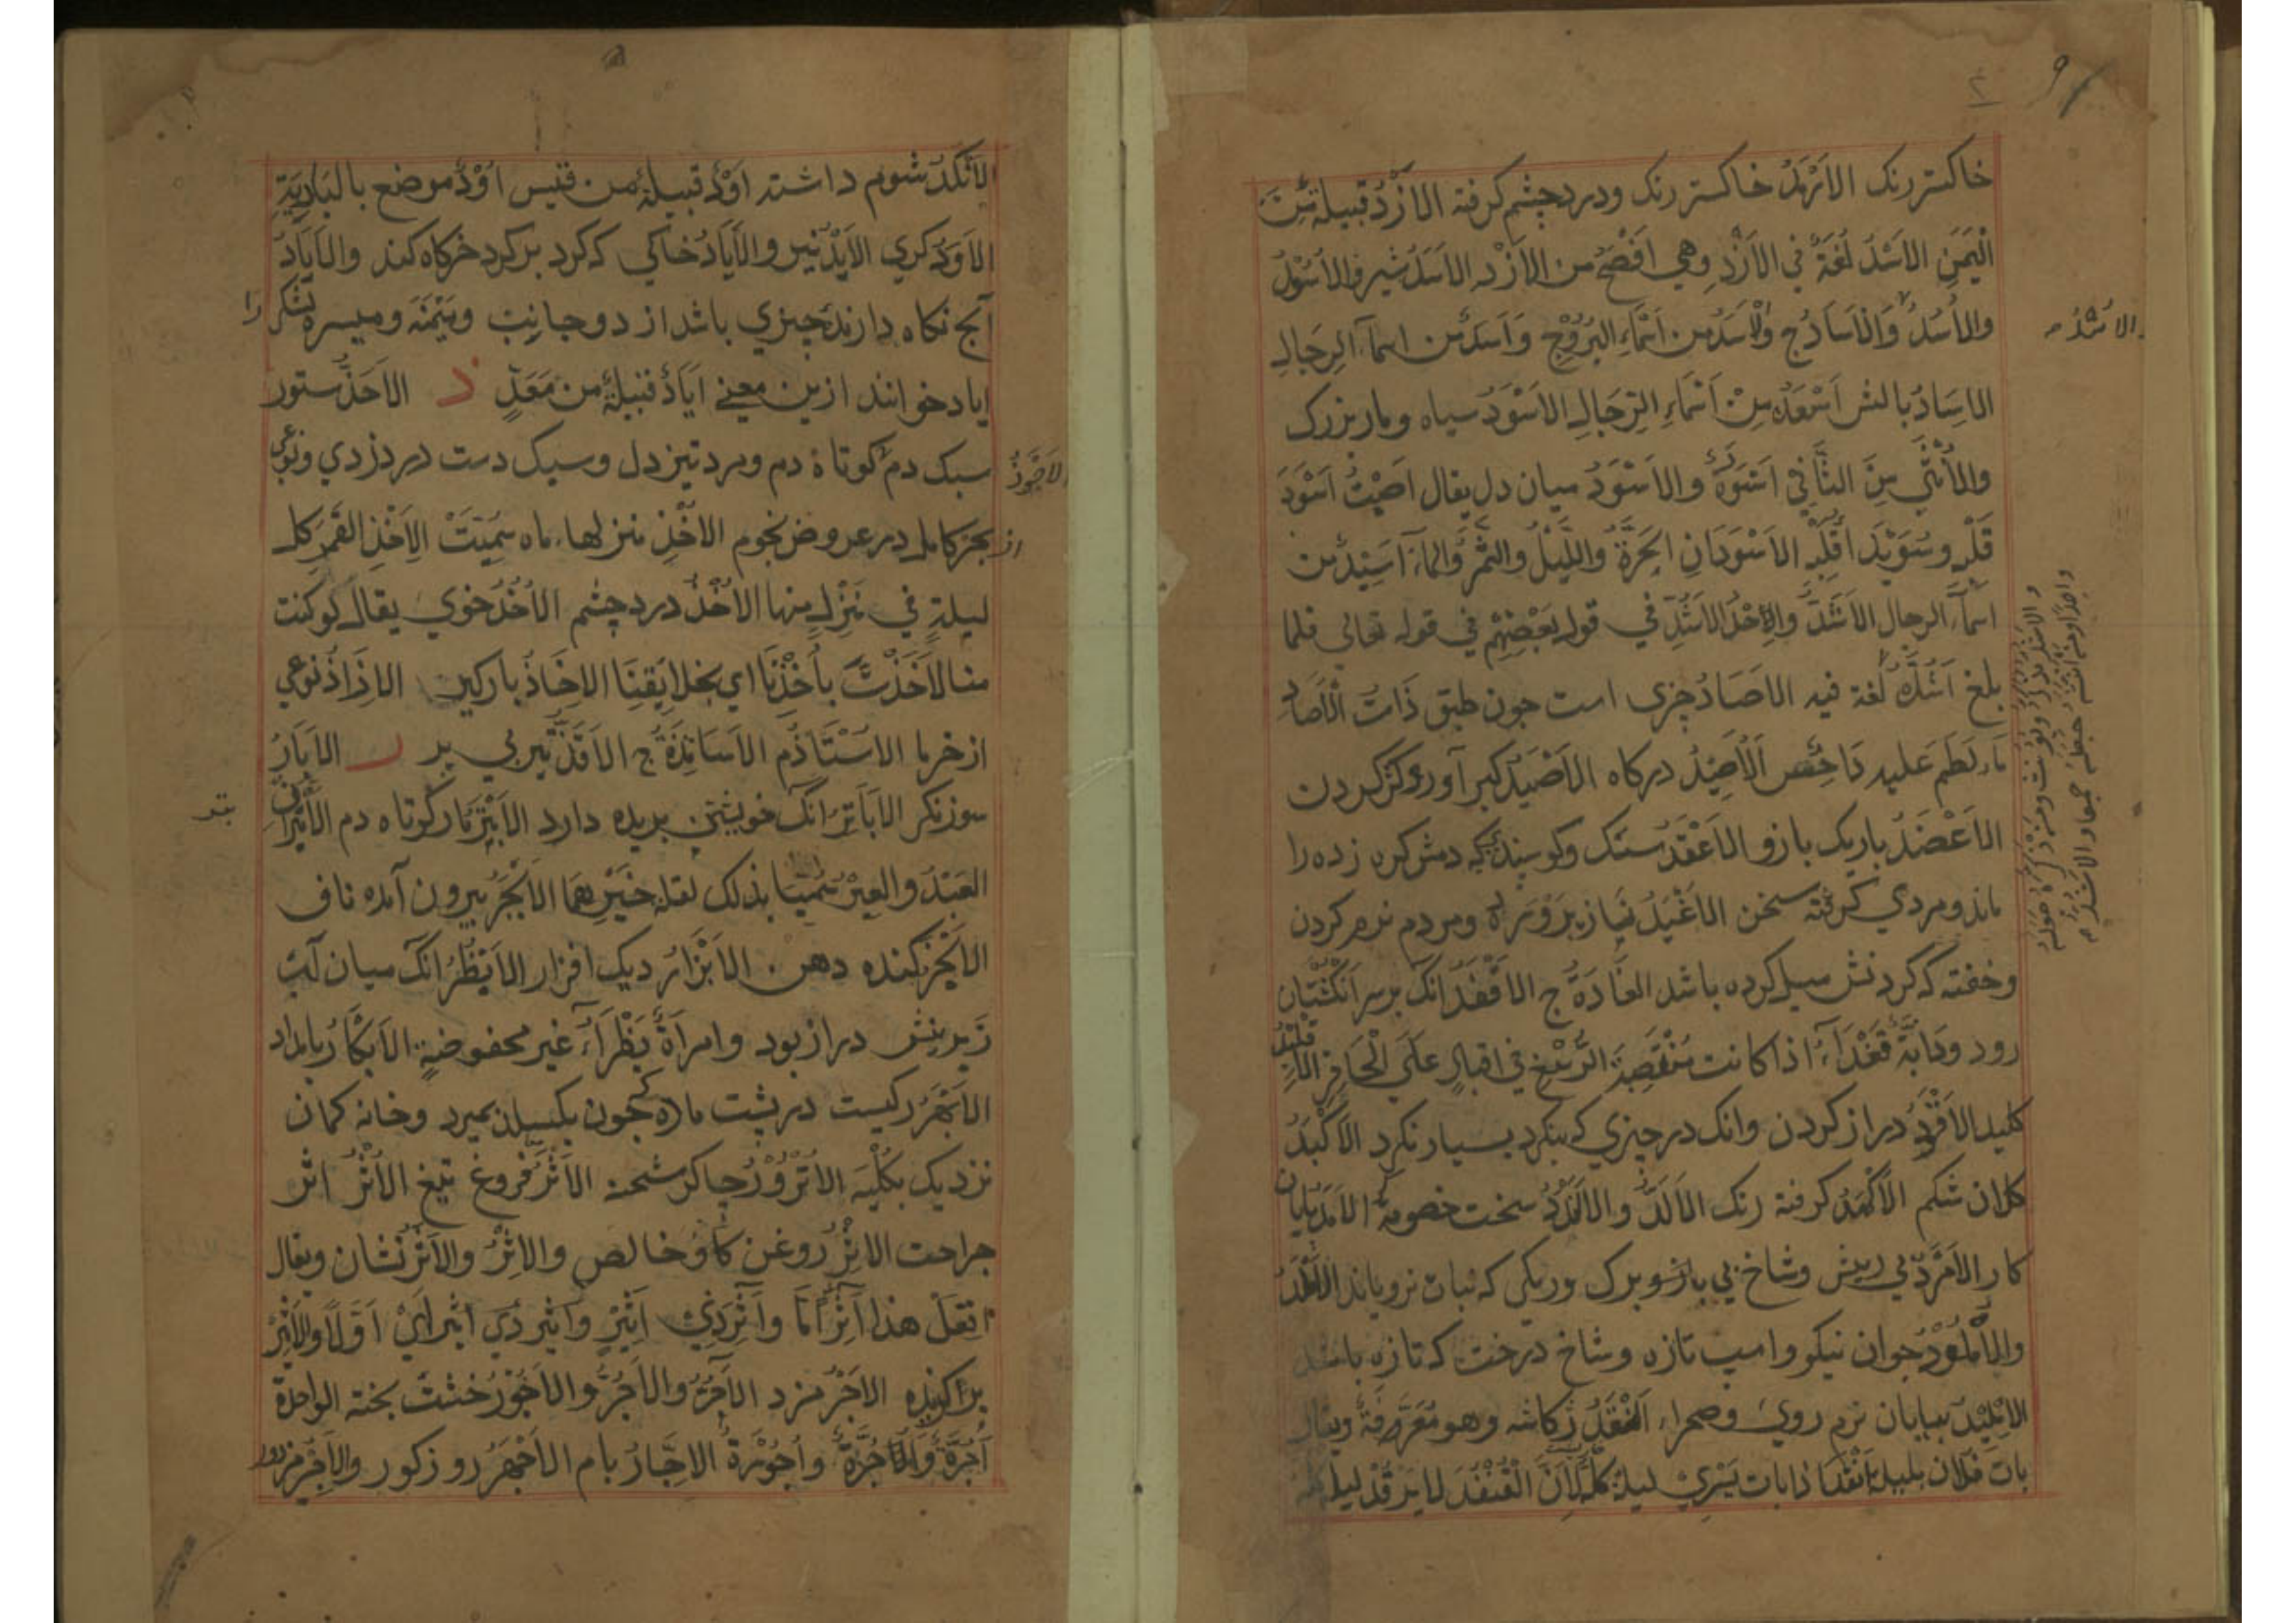 خاکستر رنک الاَرْبَدُ خاکستر رنک ودرد چشم کرفته الاَزْدُ قبیلةٌ مِنَ
الْیَمَنِ الاَسْدُ لُغَةٌ فی الاَزْدِ وهی اَفْصَحُ من الاَزْد الاَسَدُ شیر والاُسُوْدُ
والاُسُدُ وَالاٰسَادُ ج وَالاَسَدُ من اَسْمَاءِ البُرُوْجِ وَاَسَدٌ من اسمآء الرِجَالِ
الاِسَادُ بالش اَسْعَدُ مِنْ اَسْمَاءِ الرِّجَالِ الاَسْوَدُ سیاه ومار بزرک
والاُنْثٰی مِنَ الثَّانِی اَسْوَدَةٌ والاَسْوَدُ میان دل یقال اَصَبْتُ اَسْوَدَ
قَلْبِهِ وسُوَیْدَاءَ قَلْبِهِ الاَسْوَدَانِ الحَرَّةُ وَاللَّیْلُ والتَّمْرُ وَالمآءُ اَسِیْدٌ من
اسمآء الرجال الاَشَدُّ وَاحِدُ الاَشُدِّ فی قول بَعْضِهِمْ فی قوله تعالی فلما
بلغ اَشُدَّهُ لُغة فیه الاَصَادُ چیزی است جون طبق ذَاتُ الاَصَادِ
مَاء لَطَمَ علیه دَاحِس الاَصِیْدُ درکاه الاَصْیَدُ کبر آور وکژ کردن
الاَعْضَدُ باریک بازو الاَعْقَدُ سنک وکوسپند که دمش کره زده را
ماند ومردی کرفته سخن الاَغْیَدُ بناز پروریده ومردم نرم کردن
وخفته که کردنش میل کرده باشد الغَادَةُ ج الاَقْفَدُ انک بر سر انکشتان
رود ودَابَّةٌ قَفْدَآءُ اذا کانت مُنْتَصِبَةَ الرُّسْغِ فی اقبالٍ عَلَی الْحَافِرِ الاِقْلِیْدُ
کلید الاَقْوَدُ دراز کردن وانک در چیزی که بنکرد بسیار نکرد الاَکْبَدُ
کلان شکم الاَکْهَدُ کرفته رنک الاَلَدُّ والاَلَنْدَدُ سخت خصومة الاَمَدُ پایان
کار الاَمْرَدُ بی ریش وشاخ بی بار وبرک وریکی که نبات نرویاند الاَمْلَدُ
والاُمْلُوْدُ جوان نیکو واسپ تازه وشاخ درخت که تازه باشد
الاِمْلِیْدُ بیابان نرم روی وصحراء اَنْقَدُ زکاشه وهو مَعْرِفَةٌ ویقال
باتَ فلان بلیلة اَنْقَدَ اذا بات یَسْرِیْ لیلهٗ کلَّهٗ لِاَنَّ الْقُنْفُدَ لا یَرْقُدُ لیله کلهٗ
الاَشُدُّ م
الاَنْکَدُ شوم داشته اَوْدٌ قبیلةٌ من قیس اُوْدٌ موضع بالبَادِیَةِ
الاَوَدُ کژی الاَیْدُ نیرو والاَیَادُ خاکی که کرد بر کرد خرکاه کند والاِیَادُ
آنچ نکاه دارنده چیزی باشد از دو جانب ومَیْمَنَه ومیسره لشکر را
ایاد خوانند ازین معنی اِیَادٌ قبیلةٌ من مَعَدٍّ ذ الاَحَذُّ ستور
سبک دم کوتاه دم ومرد تیز دل وسبک دست در دزدی ونوعی
از بحر کامل در عروض نجوم الاَخْذِ منزلهاء ماه سُمِّیَتْ لِاَخْذِ القَمَرِ کل
لیلةٍ فی مَنْزِلٍ منها الاُخُذُ درد چشم الاَخْذُ خوی یقال لو کنت
منا لَاَخَذْتَ باَخْذِنَا ای بخلایِقِنَا الاِخَاذُ بارکین الاٰزَاذُ نوعی
از خرما الاُسْتَاذُ م الاَسَاتِذَةُ ج الاَقَذُّ تیر بی پر ر الاَبَّارُ
سوزنکر الاُبَاتِرُ انک خویشی بریده دارد الاَبْتَرُ مار کوتاه دم الاَبْتَرَانِ
العَبْدُ والعیرُ سُمِّیَا بذلک لقلة خَیْرِهِمَا الاَبْجَرُ بیرون آمده ناف
الاَبْخَرُ کنده دهن الاَبْزَارُ دیک افزار الاَبْظَرُ انک میان لب
زبرینش دراز بود وامراَةٌ بَظْرَآءُ غیر محفوضةٍ الاِبْکَارُ بامداد
الاَبْهَرُ رکیست در پشت ماده که چون بکسلد بمیرد وخانه کمان
نزدیک بکُلْیَه الاُتْرُوْرُ چاکر شحنه الاَثْرُ فروغ تیغ الاُثْرُ اثر
جراحت الاِثْرُ روغن کاو خالص والاِثْرُ والاَثَرُ نشان ویقال
اِفْعَلْ هذا اٰثِرًا مَّا وَاٰثِرَ ذِیْ اَثِیْرٍ وَاَثِیْرَ ذی اَثِیْرٍ ایْ اَوَّلًا والاَثِیْرُ
برکزیده الاَجْرُ مزد الاٰجُرُ والاٰجُرُّ والاٰجُوْرُ خشت پخته الواحدة
اٰجُرَّةٌ وَاٰجُرَةٌ واٰجُوْرَةٌ الاِجَّارُ بام الاَجْهَرُ روزکور والاَجِیْرُ مزدور